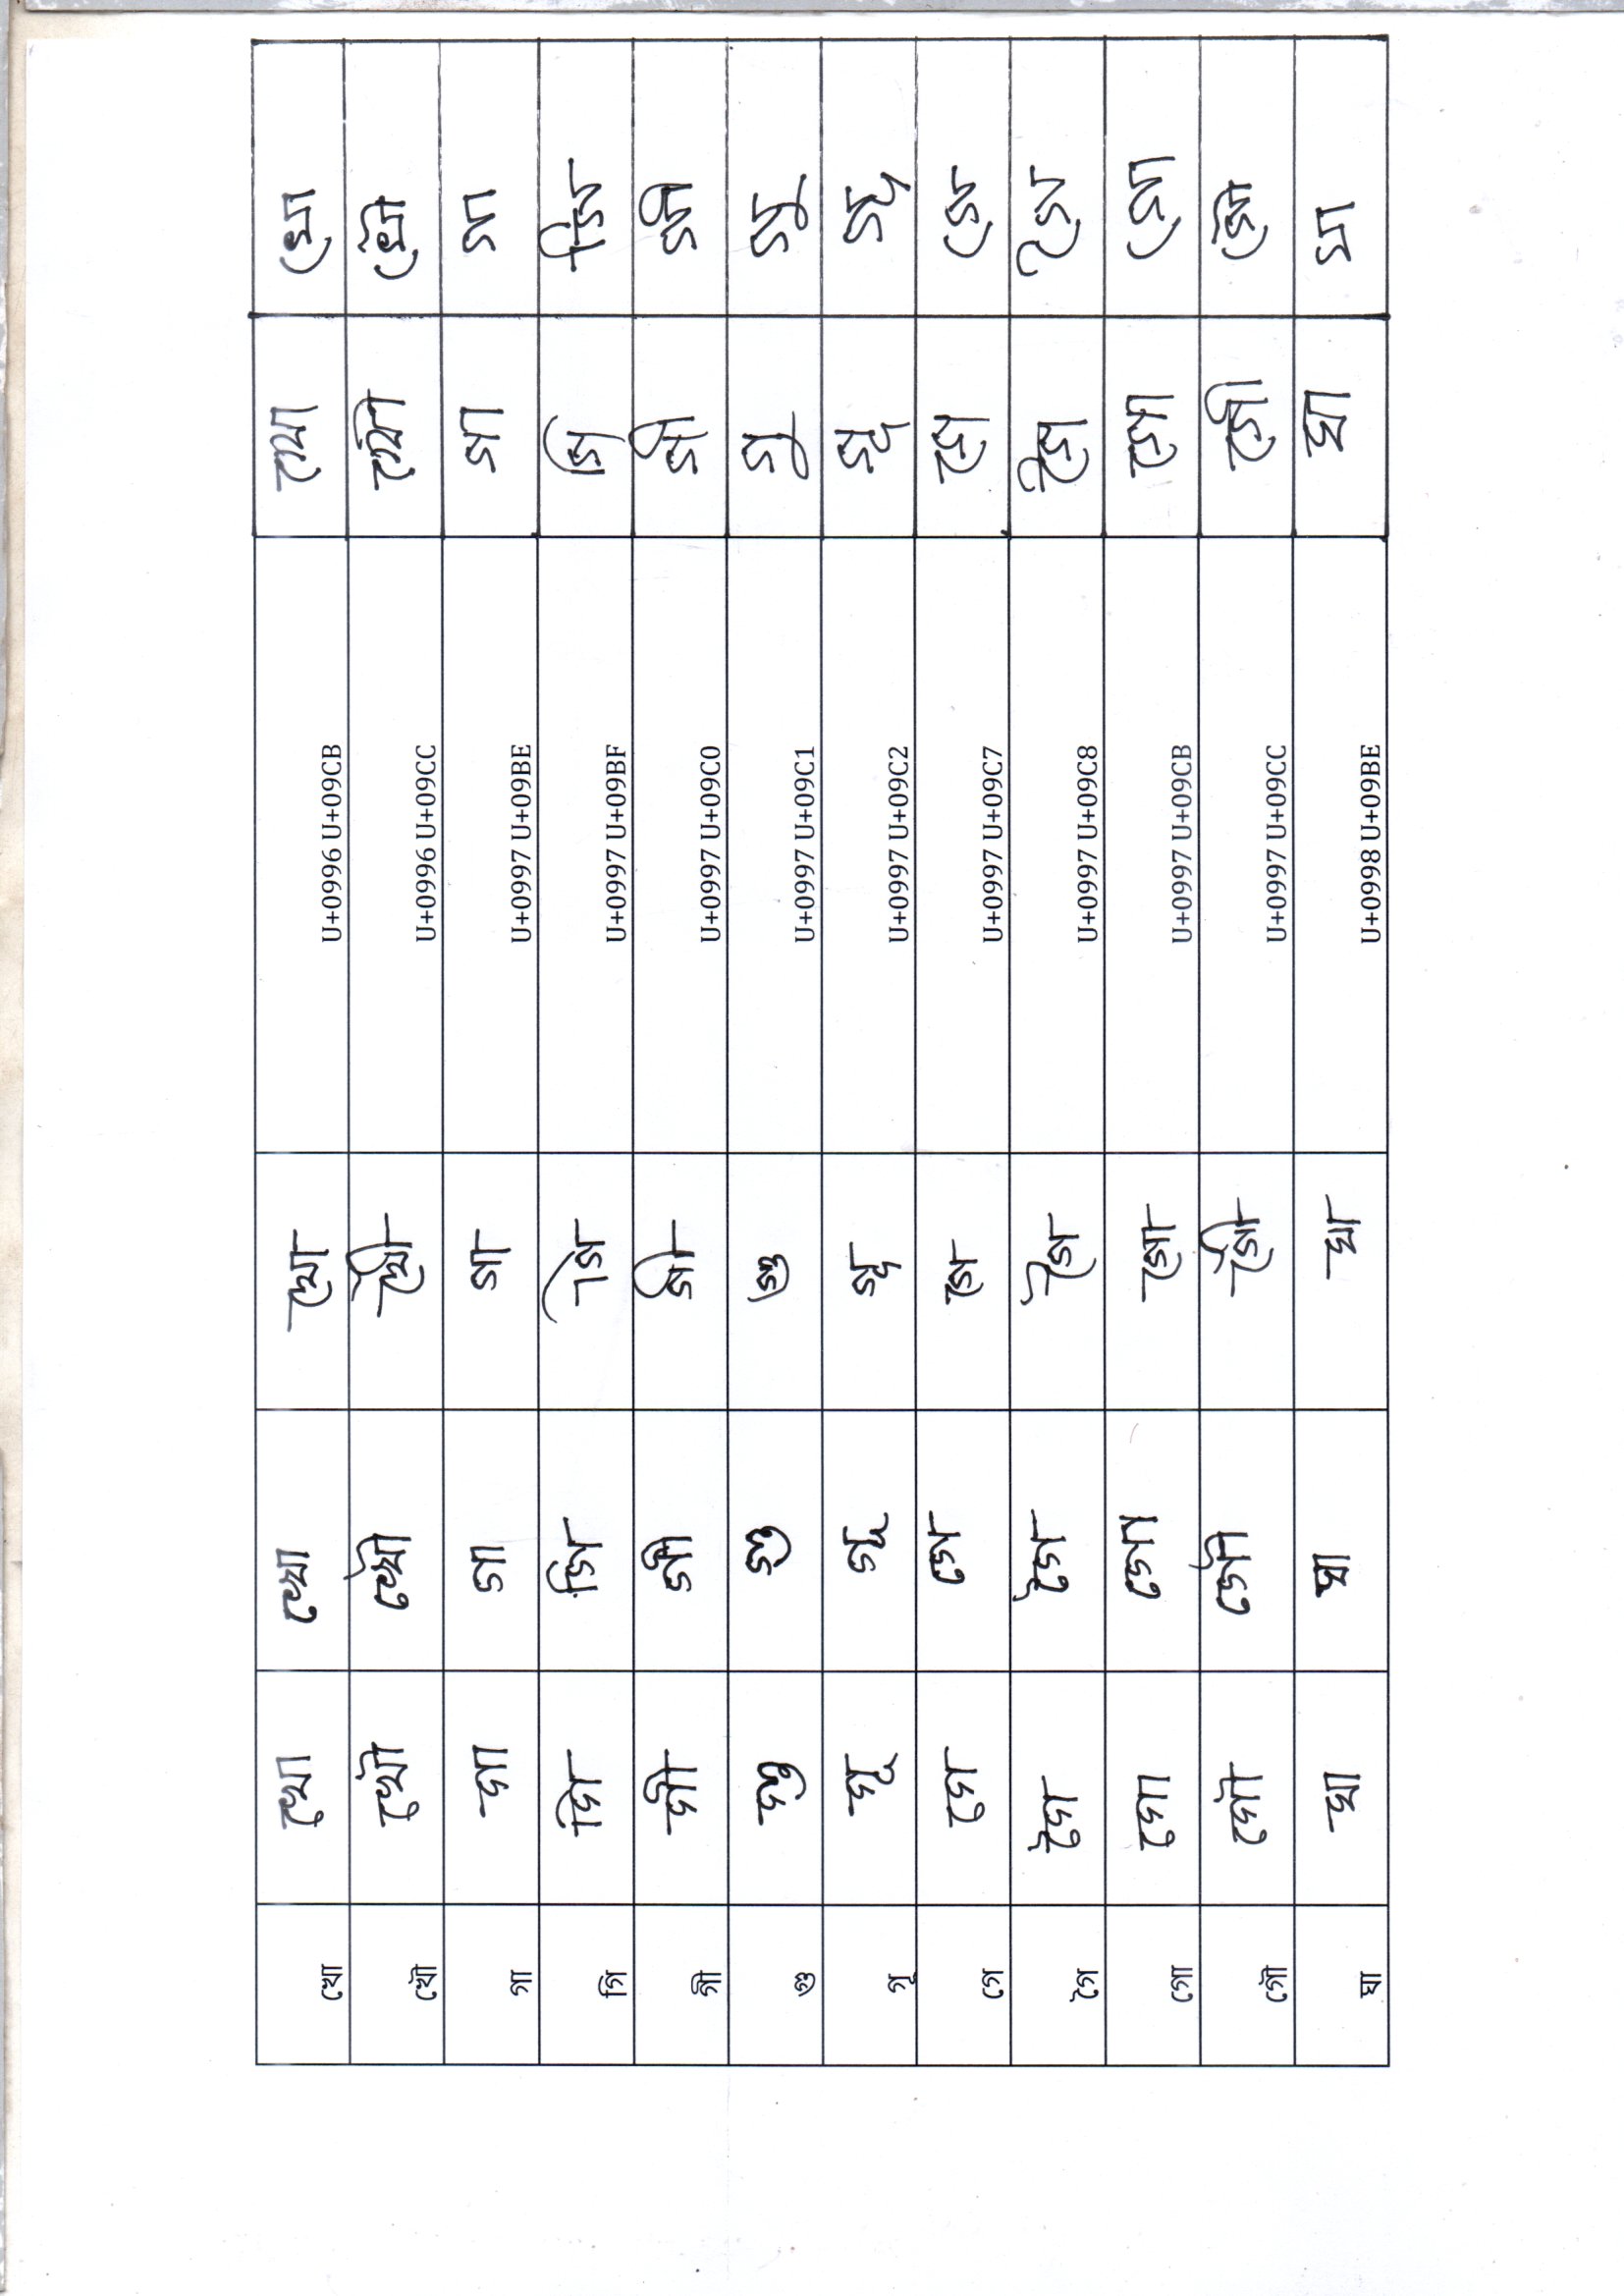 খো খো খো খো U+0996 U+09CB খো খো
খৌ খৌ খৌ খৌ U+0996 U+09CC খৌ খৌ
গা গা গা গা U+0997 U+09BE গা গা
গি গি গি গি U+0997 U+09BF গি গি
গী গী গী গী U+0997 U+09C0 গী গী
গু গু গু গু U+0997 U+09C1 গু গু
গূ গূ গূ গূ U+0997 U+09C2 গূ গূ
গে গে গে গে U+0997 U+09C7 গে গে
গৈ গৈ গৈ গৈ U+0997 U+09C8 গৈ গৈ
গো গো গো গো U+0997 U+09CB গো গো
গৌ গৌ গৌ গৌ U+0997 U+09CC গৌ গৌ
ঘা ঘা ঘা ঘা U+0998 U+09BE ঘা ঘা